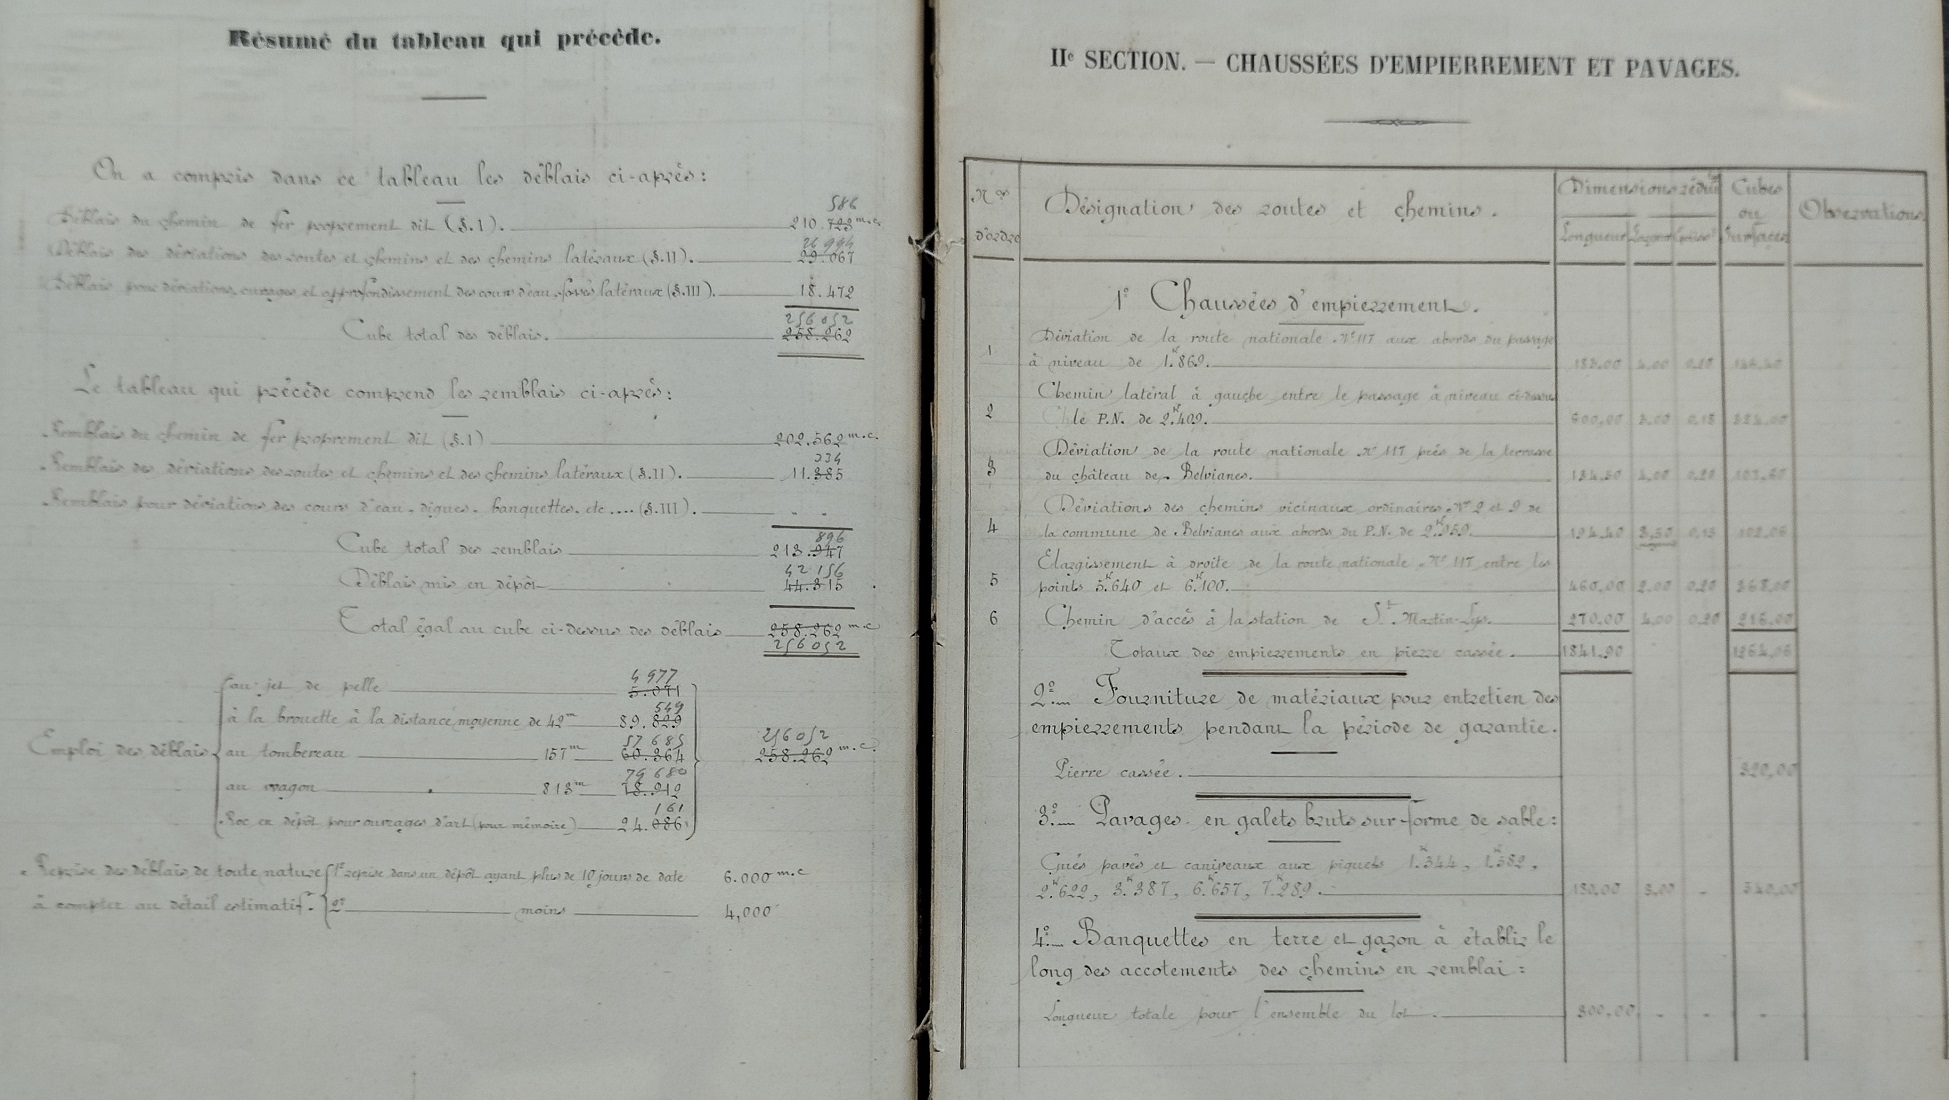 Résumé du tableau qui précède.
On a compris dans ce tableau les déblais ci-après:
586
Déblais du chemin de fer proprement dit (§.I). 210.723 m.c.
26 994
Déblais des déviations des routes et chemins et des chemins latéraux (§.II). 29.067
Déblais pour déviations, curages et approfondissement des cours d'eau, fossés latéraux (§.III). 18.472
256 052
Cube total des déblais. 258.262
Le tableau qui précède comprend les remblais ci-après:
Remblais du chemin de fer proprement dit (§.I) 202.562 m.c.
334
Remblais des déviations des routes et chemins et des chemins latéraux (§.II). 11.385
Remblais pour déviations des cours d'eau, digues, banquettes, etc.... (§.III). - -
896
Cube total des remblais 213.947
42 156
Déblais mis en dépôt 44.315
Total égal au cube ci-dessus des déblais 258.262 m.c
256 052
4 977
au jet de pelle 5.071
549
à la brouette à la distance moyenne de 42m 89.829
57 685
Emploi des déblais au tombereau 157m 60.364
256 052
258.262 m.c.
79 680
au wagon 813m 78.912
161
Roc en dépôt pour ouvrages d'art (pour mémoire) 24.086
Reprise des déblais de toute nature 1re reprise dans un dépôt ayant plus de 10 jours de date 6.000 m.c
à compter au détail estimatif. 2e moins 4,000
IIe SECTION. — CHAUSSÉES D'EMPIERREMENT ET PAVAGES.
Nos d'ordre
Désignation des routes et chemins.
Dimensions réduites
Longueur Largeur Épaisseur
Cubes ou Surfaces
Observations
1° Chaussées d'empierrement.
1 Déviation de la route nationale No 117 aux abords du passage
à niveau de 1k.869. 183.00 4,00 0,20 146,40
2 Chemin latéral à gauche entre le passage à niveau ci-dessus
le P.N. de 2k.409. 600,00 3,00 0,18 324,00
3 Déviation de la route nationale No 117 près de la terrasse
du château de Belvianes. 134.50 4,00 0,20 107,60
4 Déviations des chemins vicinaux ordinaires No 2 et 9 de
la commune de Belvianes aux abords du P.N. de 2k.959. 194,40 3,50 0,15 102,06
5 Elargissement à droite de la route nationale No 117 entre les
points 5k.640 et 6k.100. 460,00 2,00 0,20 368,00
6 Chemin d'accès à la station de St Martin-Lys. 270,00 4,00 0,20 216,00
Totaux des empierrements en pierre cassée. 1841,90 1264,06
2° Fourniture de matériaux pour entretien des
empierrements pendant la période de garantie.
Pierre cassée. 320,00
3° Pavages en galets bruts sur forme de sable:
Gués pavés et caniveaux aux piquets 1k.344, 1k.582,
2k.622, 3k.387, 6k.657, 7k.289. 180.00 3,00 - 540,00
4° Banquettes en terre et gazon à établir le
long des accotements des chemins en remblai:
Longueur totale pour l'ensemble du lot. 300.00 - - -